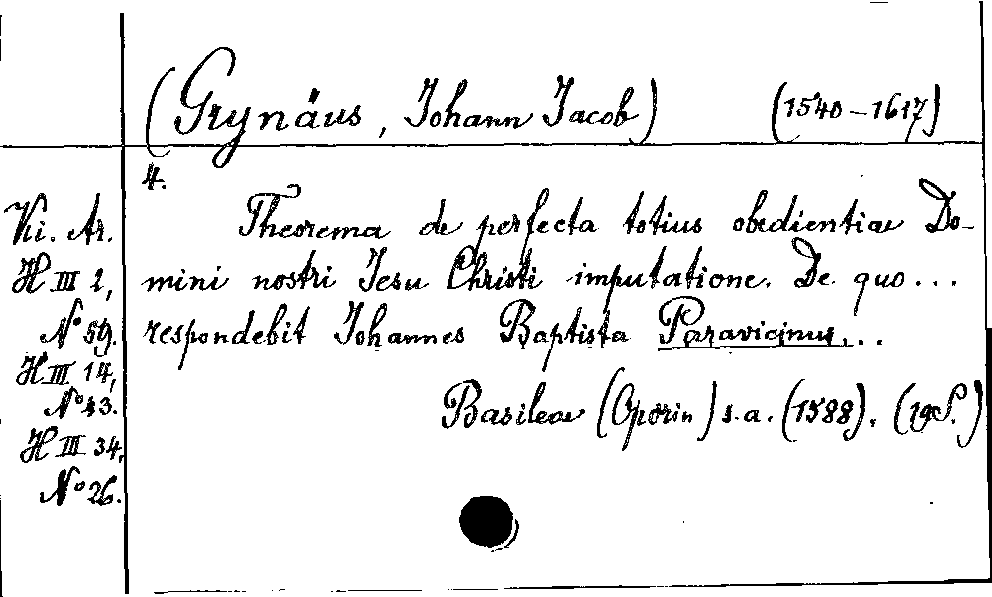 (Grynäus, Johann Jacob) (1540–1617)
4.
Ki. Ar.
H III 2,
No 59.
H III 14,
No 43.
H III 34,
No 26.
Theorema de perfecta totius obedientiae Do-
mini nostri Jesu Christi imputatione. De quo...
respondebit Johannes Baptista Paravicinus...
Basileae (Oporin) s.a. (1588). S.)